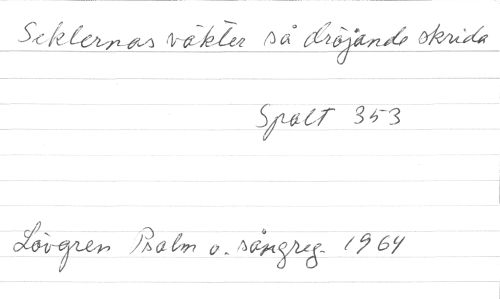 Seklernas väkter så dröjande skrida
Spalt 353
Lövgren Psalm o. sångreg. 1964